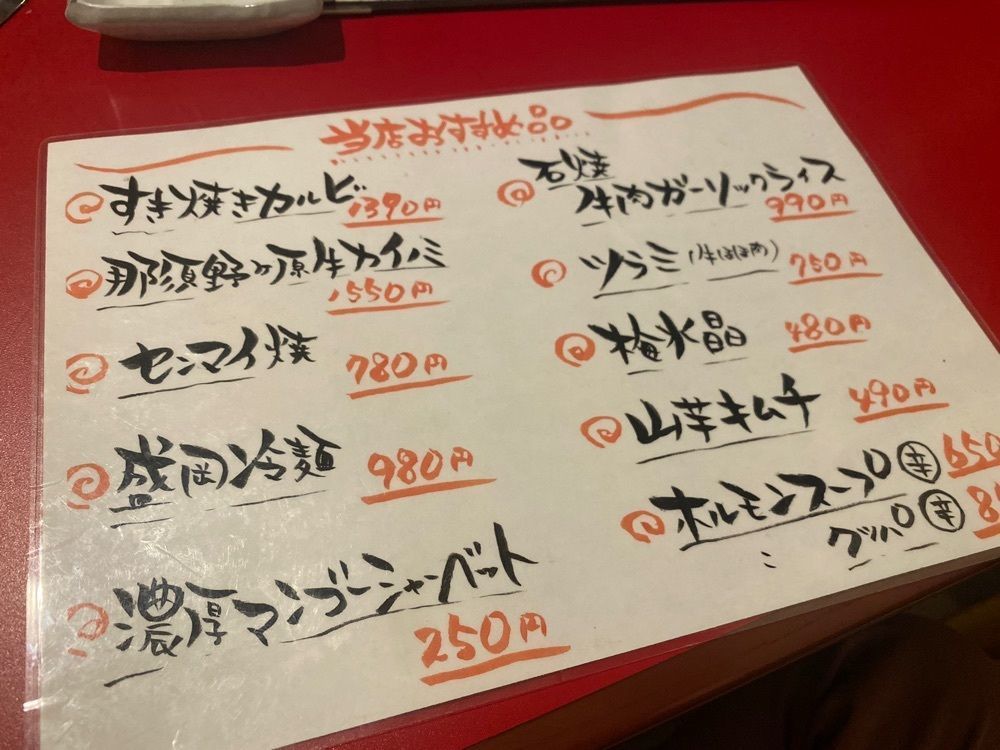 当店おすすめ品
すき焼きカルビ 1390円
那須野ヶ原牛カイノミ 1550円
センマイ焼 780円
盛岡冷麺 980円
濃厚マンゴーシャーベット 250円
石焼
牛肉ガーリックライス 990円
ツラミ(牛ほほ肉) 750円
梅水晶 480円
山芋キムチ 490円
ホルモンスープ 辛 650
〃 クッパ 辛